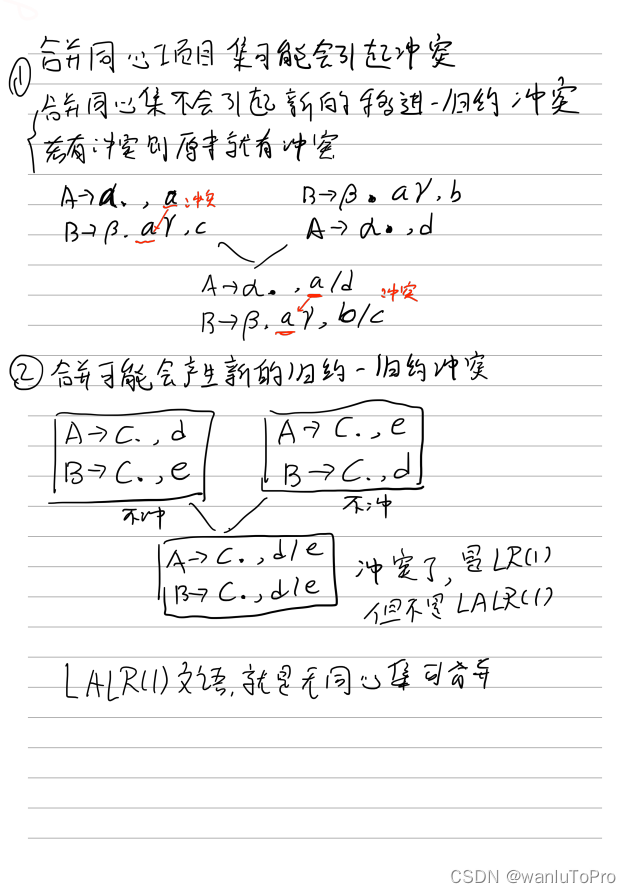 合并同心项目集可能会引起冲突
① 合并同心集不会引起新的移进-归约冲突
若有冲突则原来就有冲突
A→α. , a 冲突 B→β. aγ, b
B→β. aγ, c A→α. , d
A→α. , a/d
B→β. aγ, b/c 冲突
② 合并可能会产生新的归约-归约冲突
A→C. , d A→C. , e
B→C. , e B→C. , d
不冲 不冲
A→C. , d/e 冲突了, 是LR(1)
B→C. , d/e 但不是LALR(1)
LALR(1)文法, 就是无同心集可合并
CSDN @wanluToPro